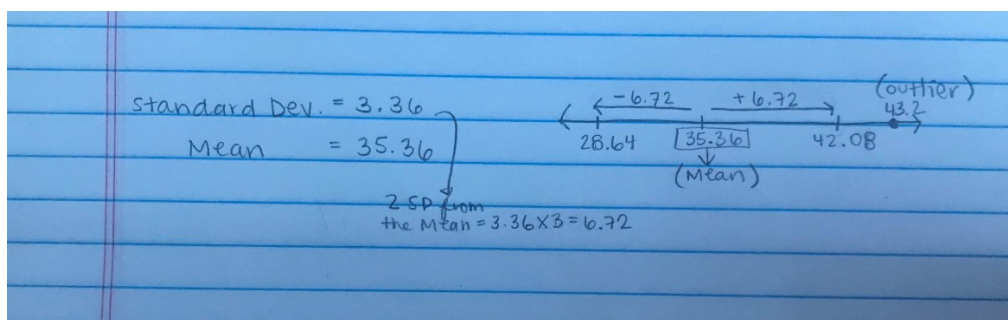 Standard Dev. = 3.36
Mean = 35.36
2 SD from
the Mean = 3.36 X 3 = 6.72
(outlier)
-6.72 +6.72 43.2
28.64 35.36 42.08
(Mean)